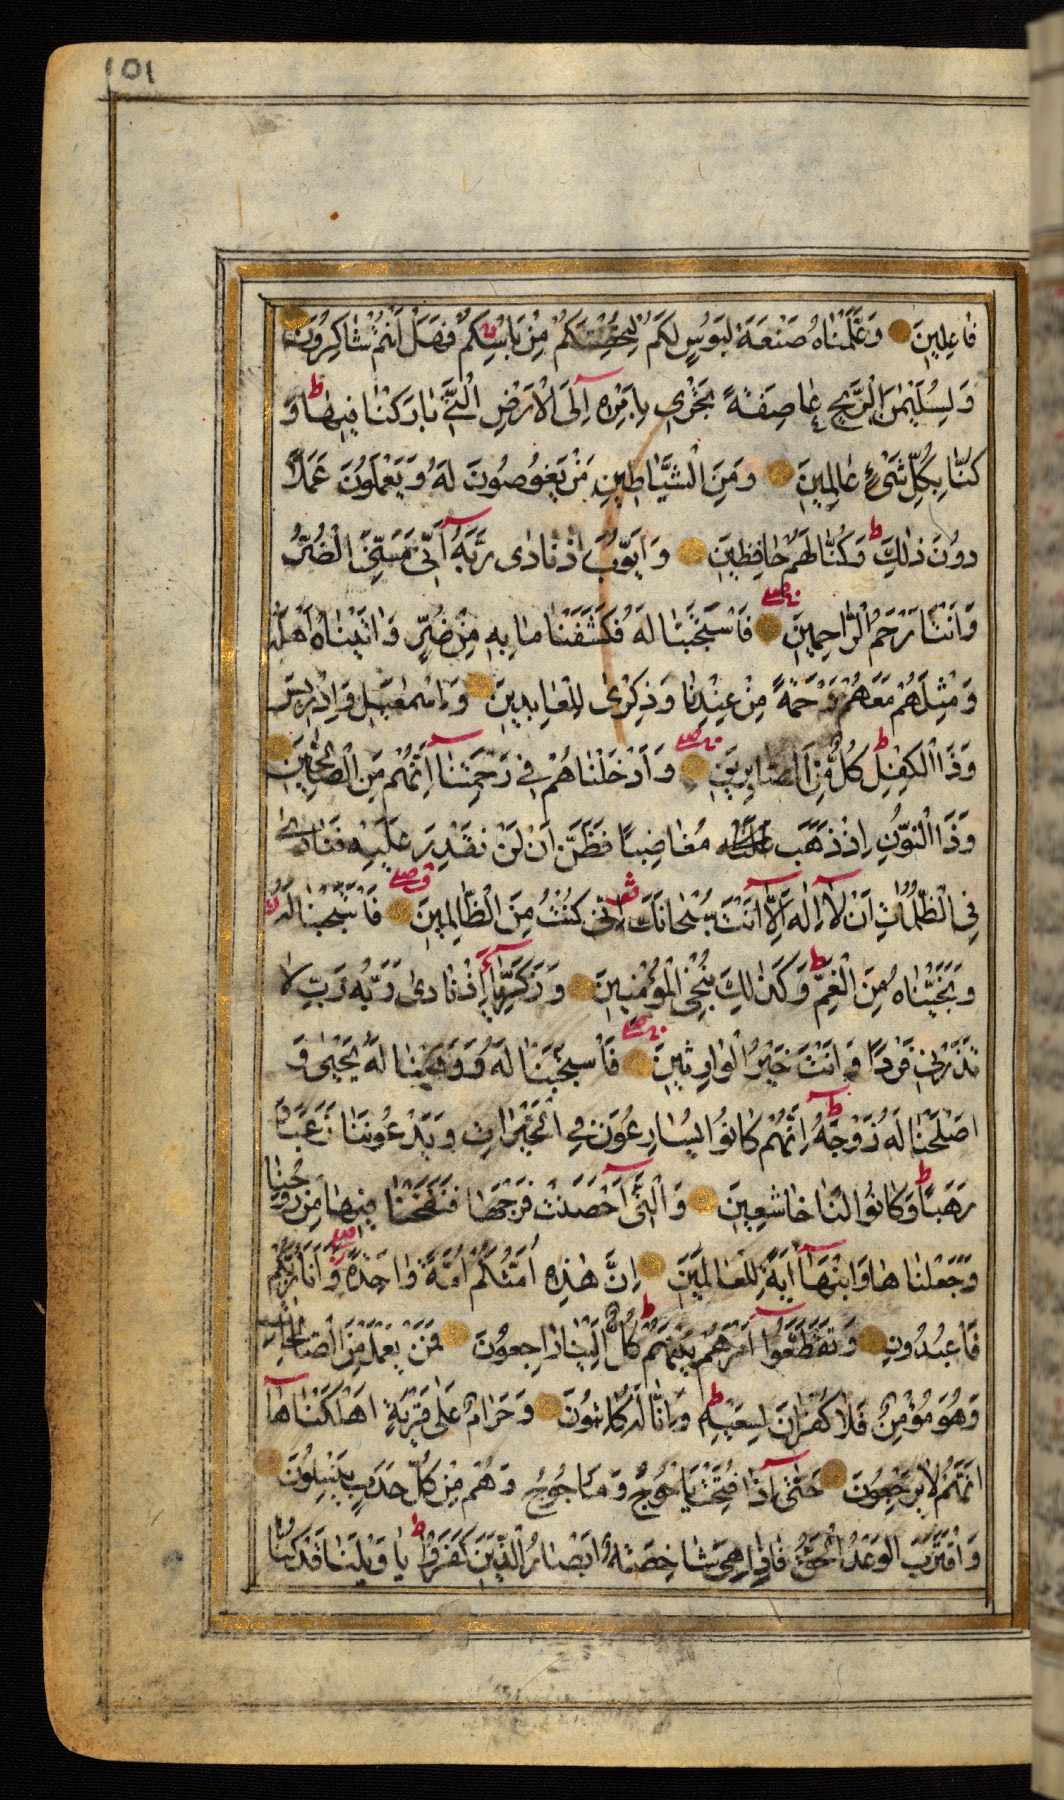 101
فَاعِلِينَ وَعَلَّمْنَاهُ صَنْعَةَ لَبُوسٍ لَكُمْ لِتُحْصِنَكُمْ مِنْ بَأْسِكُمْ فَهَلْ اَنْتُمْ شَاكِرُونَ
وَلِسُلَيْمٰنَ الرِّيحَ عَاصِفَةً تَجْرِى بِاَمْرِهِ اِلَى الْاَرْضِ الَّتِى بَارَكْنَا فِيهَا ط وَ
كُنَّا بِكُلِّ شَىْءٍ عَالِمِينَ وَمِنَ الشَّيَاطِينِ مَنْ يَغُوصُونَ لَهُ وَيَعْمَلُونَ عَمَلًا
دُونَ ذٰلِكَ ط وَكُنَّا لَهُمْ حَافِظِينَ وَاَيُّوبَ اِذْ نَادٰى رَبَّهُ اَنِّى مَسَّنِىَ الضُّرُّ
وَاَنْتَ اَرْحَمُ الرَّاحِمِينَ فَاسْتَجَبْنَا لَهُ فَكَشَفْنَا مَا بِهِ مِنْ ضُرٍّ وَاٰتَيْنَاهُ اَهْلَهُ
وَمِثْلَهُمْ مَعَهُمْ رَحْمَةً مِنْ عِنْدِنَا وَذِكْرٰى لِلْعَابِدِينَ وَاِسْمٰعِيلَ وَاِدْرِيسَ
وَذَا الْكِفْلِ ط كُلٌّ مِنَ الصَّابِرِينَ وَاَدْخَلْنَاهُمْ فِى رَحْمَتِنَا اِنَّهُمْ مِنَ الصَّالِحِينَ
وَذَا النُّونِ اِذْ ذَهَبَ مُغَاضِبًا فَظَنَّ اَنْ لَنْ نَقْدِرَ عَلَيْهِ فَنَادٰى
فِى الظُّلُمَاتِ اَنْ لَا اِلٰهَ اِلَّا اَنْتَ سُبْحَانَكَ اِنِّى كُنْتُ مِنَ الظَّالِمِينَ فَاسْتَجَبْنَا لَهُ
وَنَجَّيْنَاهُ مِنَ الْغَمِّ ط وَكَذٰلِكَ نُنْجِى الْمُؤْمِنِينَ وَزَكَرِيَّا اِذْ نَادٰى رَبَّهُ رَبِّ لَا
تَذَرْنِى فَرْدًا وَاَنْتَ خَيْرُ الْوَارِثِينَ فَاسْتَجَبْنَا لَهُ وَوَهَبْنَا لَهُ يَحْيٰى وَ
اَصْلَحْنَا لَهُ زَوْجَهُ ط اِنَّهُمْ كَانُوا يُسَارِعُونَ فِى الْخَيْرَاتِ وَيَدْعُونَنَا رَغَبًا وَ
رَهَبًا ط وَكَانُوا لَنَا خَاشِعِينَ وَالَّتِى اَحْصَنَتْ فَرْجَهَا فَنَفَخْنَا فِيهَا مِنْ رُوحِنَا
وَجَعَلْنَاهَا وَابْنَهَا اٰيَةً لِلْعَالَمِينَ اِنَّ هٰذِهِ اُمَّتُكُمْ اُمَّةً وَاحِدَةً وَاَنَا رَبُّكُمْ
فَاعْبُدُونِ وَتَقَطَّعُوا اَمْرَهُمْ بَيْنَهُمْ ط كُلٌّ اِلَيْنَا رَاجِعُونَ فَمَنْ يَعْمَلْ مِنَ الصَّالِحَاتِ
وَهُوَ مُؤْمِنٌ فَلَا كُفْرَانَ لِسَعْيِهِ ط وَاِنَّا لَهُ كَاتِبُونَ وَحَرَامٌ عَلٰى قَرْيَةٍ اَهْلَكْنَاهَا
اَنَّهُمْ لَا يَرْجِعُونَ حَتّٰى اِذَا فُتِحَتْ يَاْجُوجُ وَمَاْجُوجُ وَهُمْ مِنْ كُلِّ حَدَبٍ يَنْسِلُونَ
وَاقْتَرَبَ الْوَعْدُ الْحَقُّ فَاِذَا هِىَ شَاخِصَةٌ اَبْصَارُ الَّذِينَ كَفَرُوا ط يَا وَيْلَنَا قَدْ كُنَّا